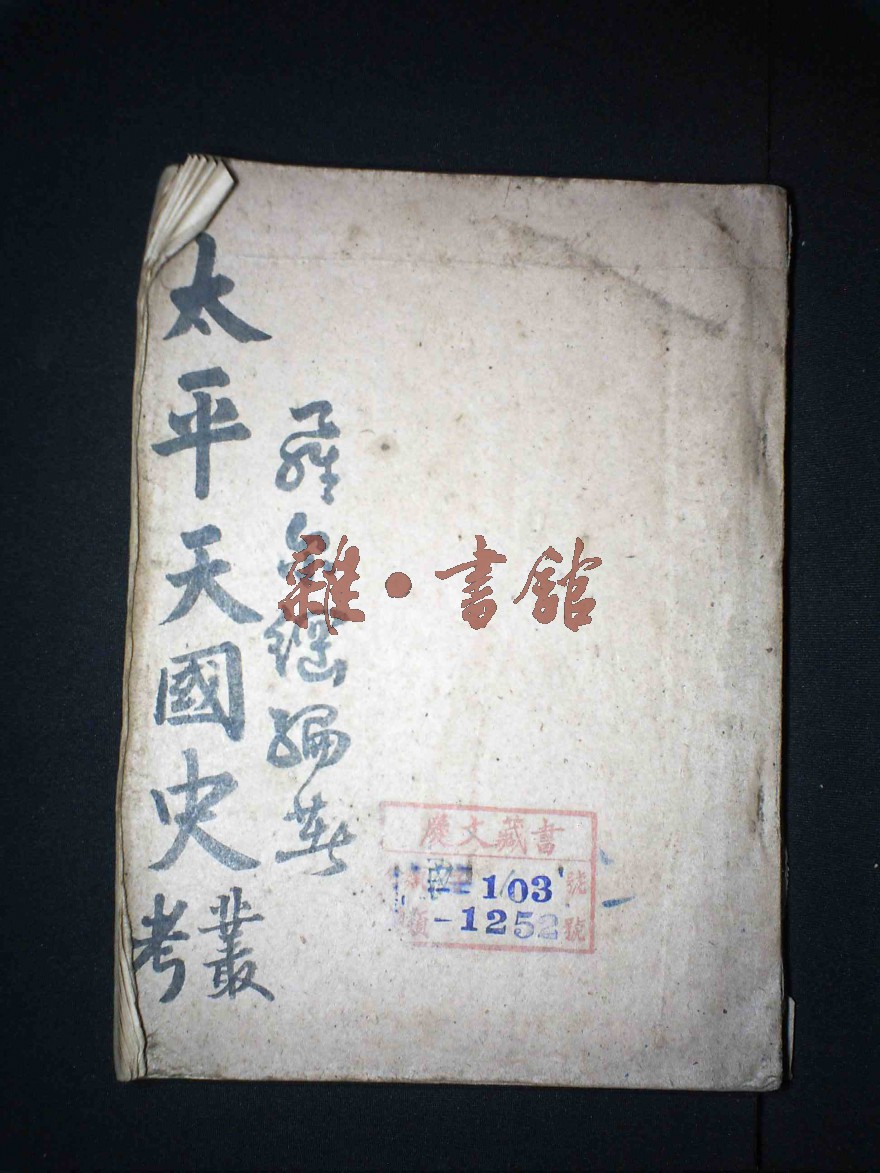 太平天國史叢考
羅尔綱編著
雜·書館
文藏書
-103號
-1252號